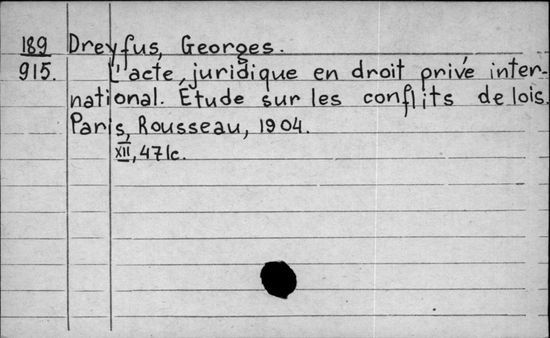 189 Dreyfus, Georges.
915. L'acte juridique en droit privé inter-
national. Étude sur les conflits de lois.
Paris, Rousseau, 1904.
XII, 471c.